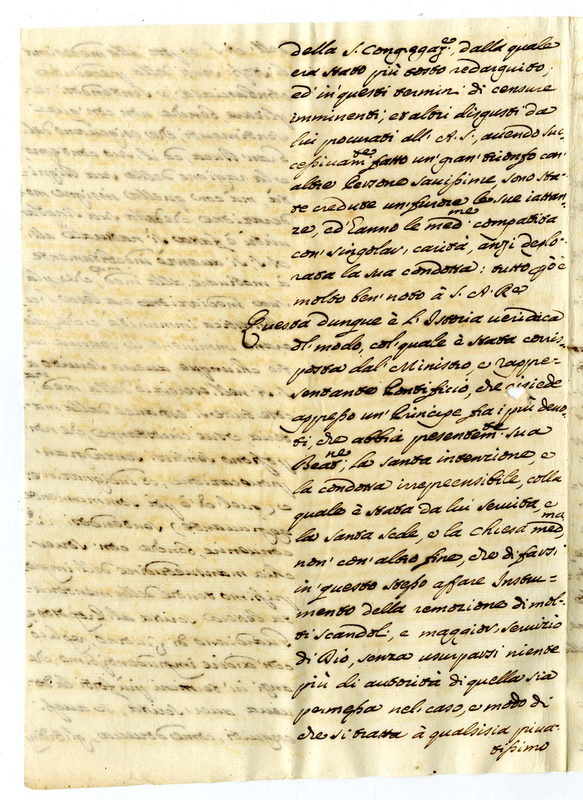 della S. Congregaz.e, dalla quale
era stato più tosto redarguito;
ed' in questi termini di censure
imminenti, et altri disgusti da
lui procurati all' A. S., avendo suc-
cessivam.te fatto un' gran' trionfo con'
altre Persone savissime, sono sta-
te credute un' furore le sue iattan-
ze, ed' hanno le med.me compatita
con' singolar' carità, anzi deplo-
rata la sua condotta: tutto ciò è
molto ben' noto à S. A. Re
Questa dunque è l' Istoria veridica
del modo, col' quale è stata corris-
posta dal' Ministro, e rappre-
sentante Pontificio, che risiede
appresso un' Principe fra i più devo-
ti, che abbia presentem.te sua
Beat.ne; la santa intenzione, e
la condotta irreprensibile, colla
quale è stata da lui servita, e
la Santa Sede, e la Chiesa med.ma
non' con' altro fine, che di farsi
in' questo stesso affare Instru-
mento della remozione di mol-
ti scandoli, e maggior' servizio
di Dio, senza usurparsi niente
più di autorità di quella sia
permessa nel' caso, e modo di
che si tratta à qualsisia priva-
tissimo